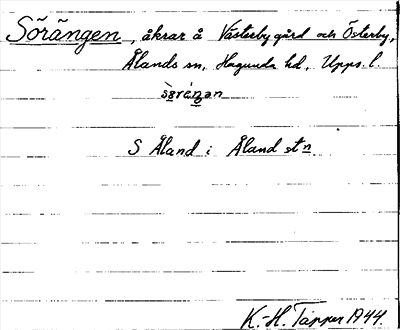 Sörängen, åkrar å Västerby gård och Österby,
Ålands sn, Hagunda hd, Upps. l.
S Åland i Åland stn
K.-H. Tapper 1944.